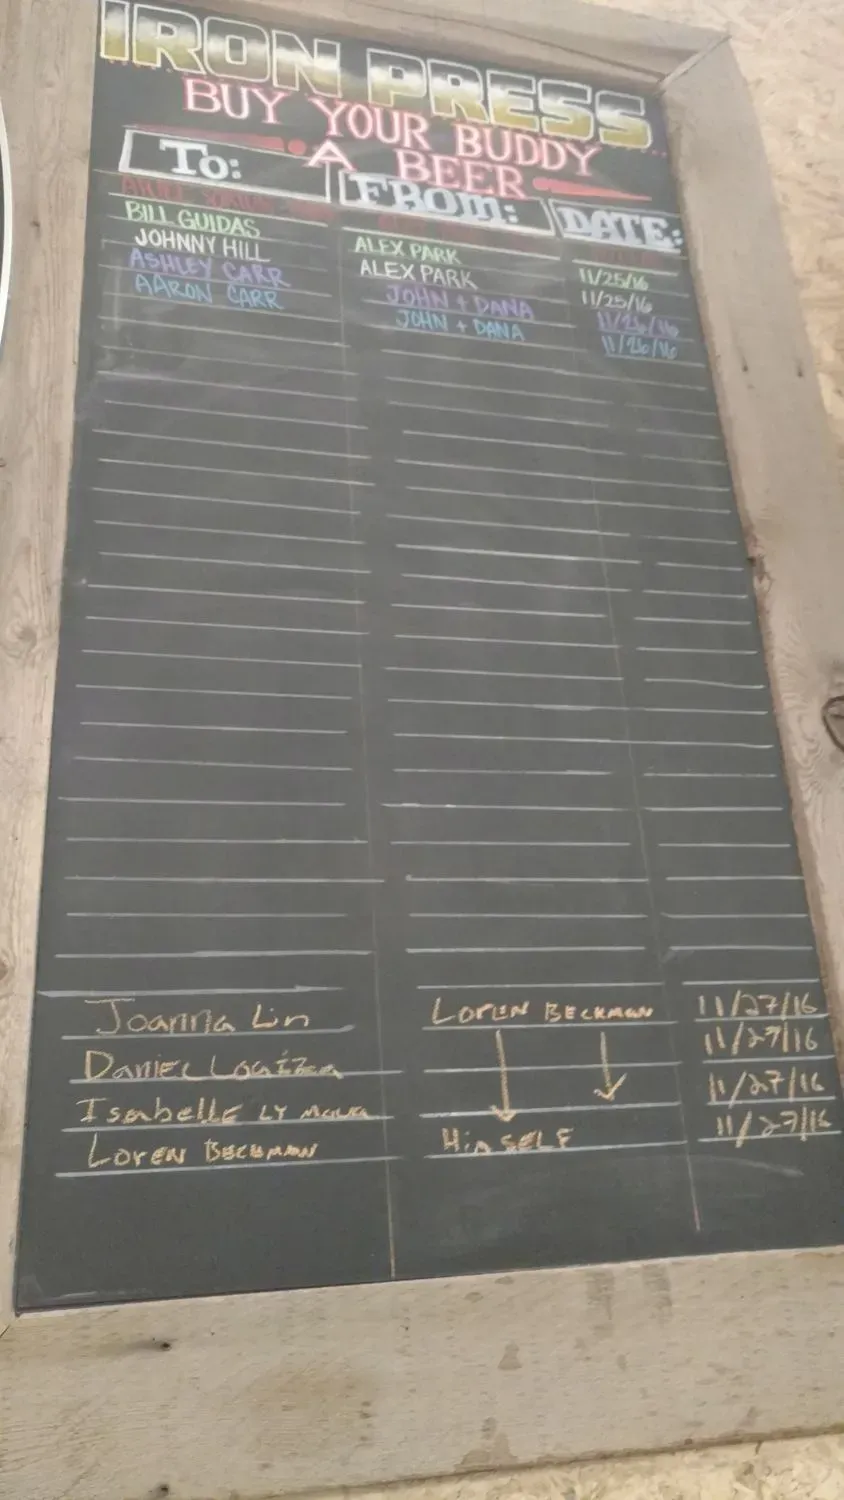 IRON PRESS
BUY YOUR BUDDY
A BEER
TO: FROM: DATE:
BILL GUIDAS ALEX PARK 11/25/16
JOHNNY HILL ALEX PARK 11/25/16
ASHLEY CARR JOHN + DANA 11/26/16
AARON CARR JOHN + DANA 11/26/16
Joanna Lin LOREN BECKMAN 11/27/16
DANIEL 11/27/16
ISABELLE LY 11/27/16
LOREN BECKMAN HIMSELF 11/27/16